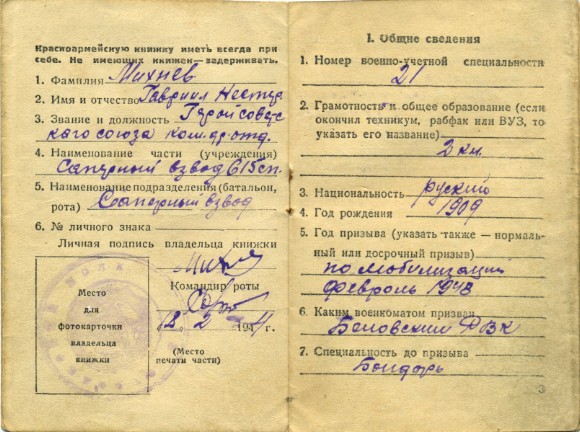 Красноармейскую книжку иметь всегда при
себе. Не имеющих книжек—задерживать.
1. Фамилия Михнёв
2. Имя и отчество Гавриил Нестер
3. Звание и должность Герой совет-
ского союза ком-др отд.
4. Наименование части (учреждения)
Саперный взвод 615 сп.
5. Наименование подразделения (батальон,
рота) Саперный взвод
6. № личного знака
Личная подпись владельца книжки
Командир роты
Место
для
фотокарточки
владельца
книжки
12. 2 1944г.
(Место
печати части)
I. Общие сведения
1. Номер военно-учетной специальности
21
2. Грамотность и общее образование (если
окончил техникум, рабфак или ВУЗ, то
указать его название)
2 кл.
3. Национальность руский
4. Год рождения 1909
5. Год призыва (указать также — нормаль-
ный или досрочный призыв)
по мобилизаций
февроль 1943
6. Каким военкоматом призван
Беловский РВК
7. Специальность до призыва
Бондарь
3